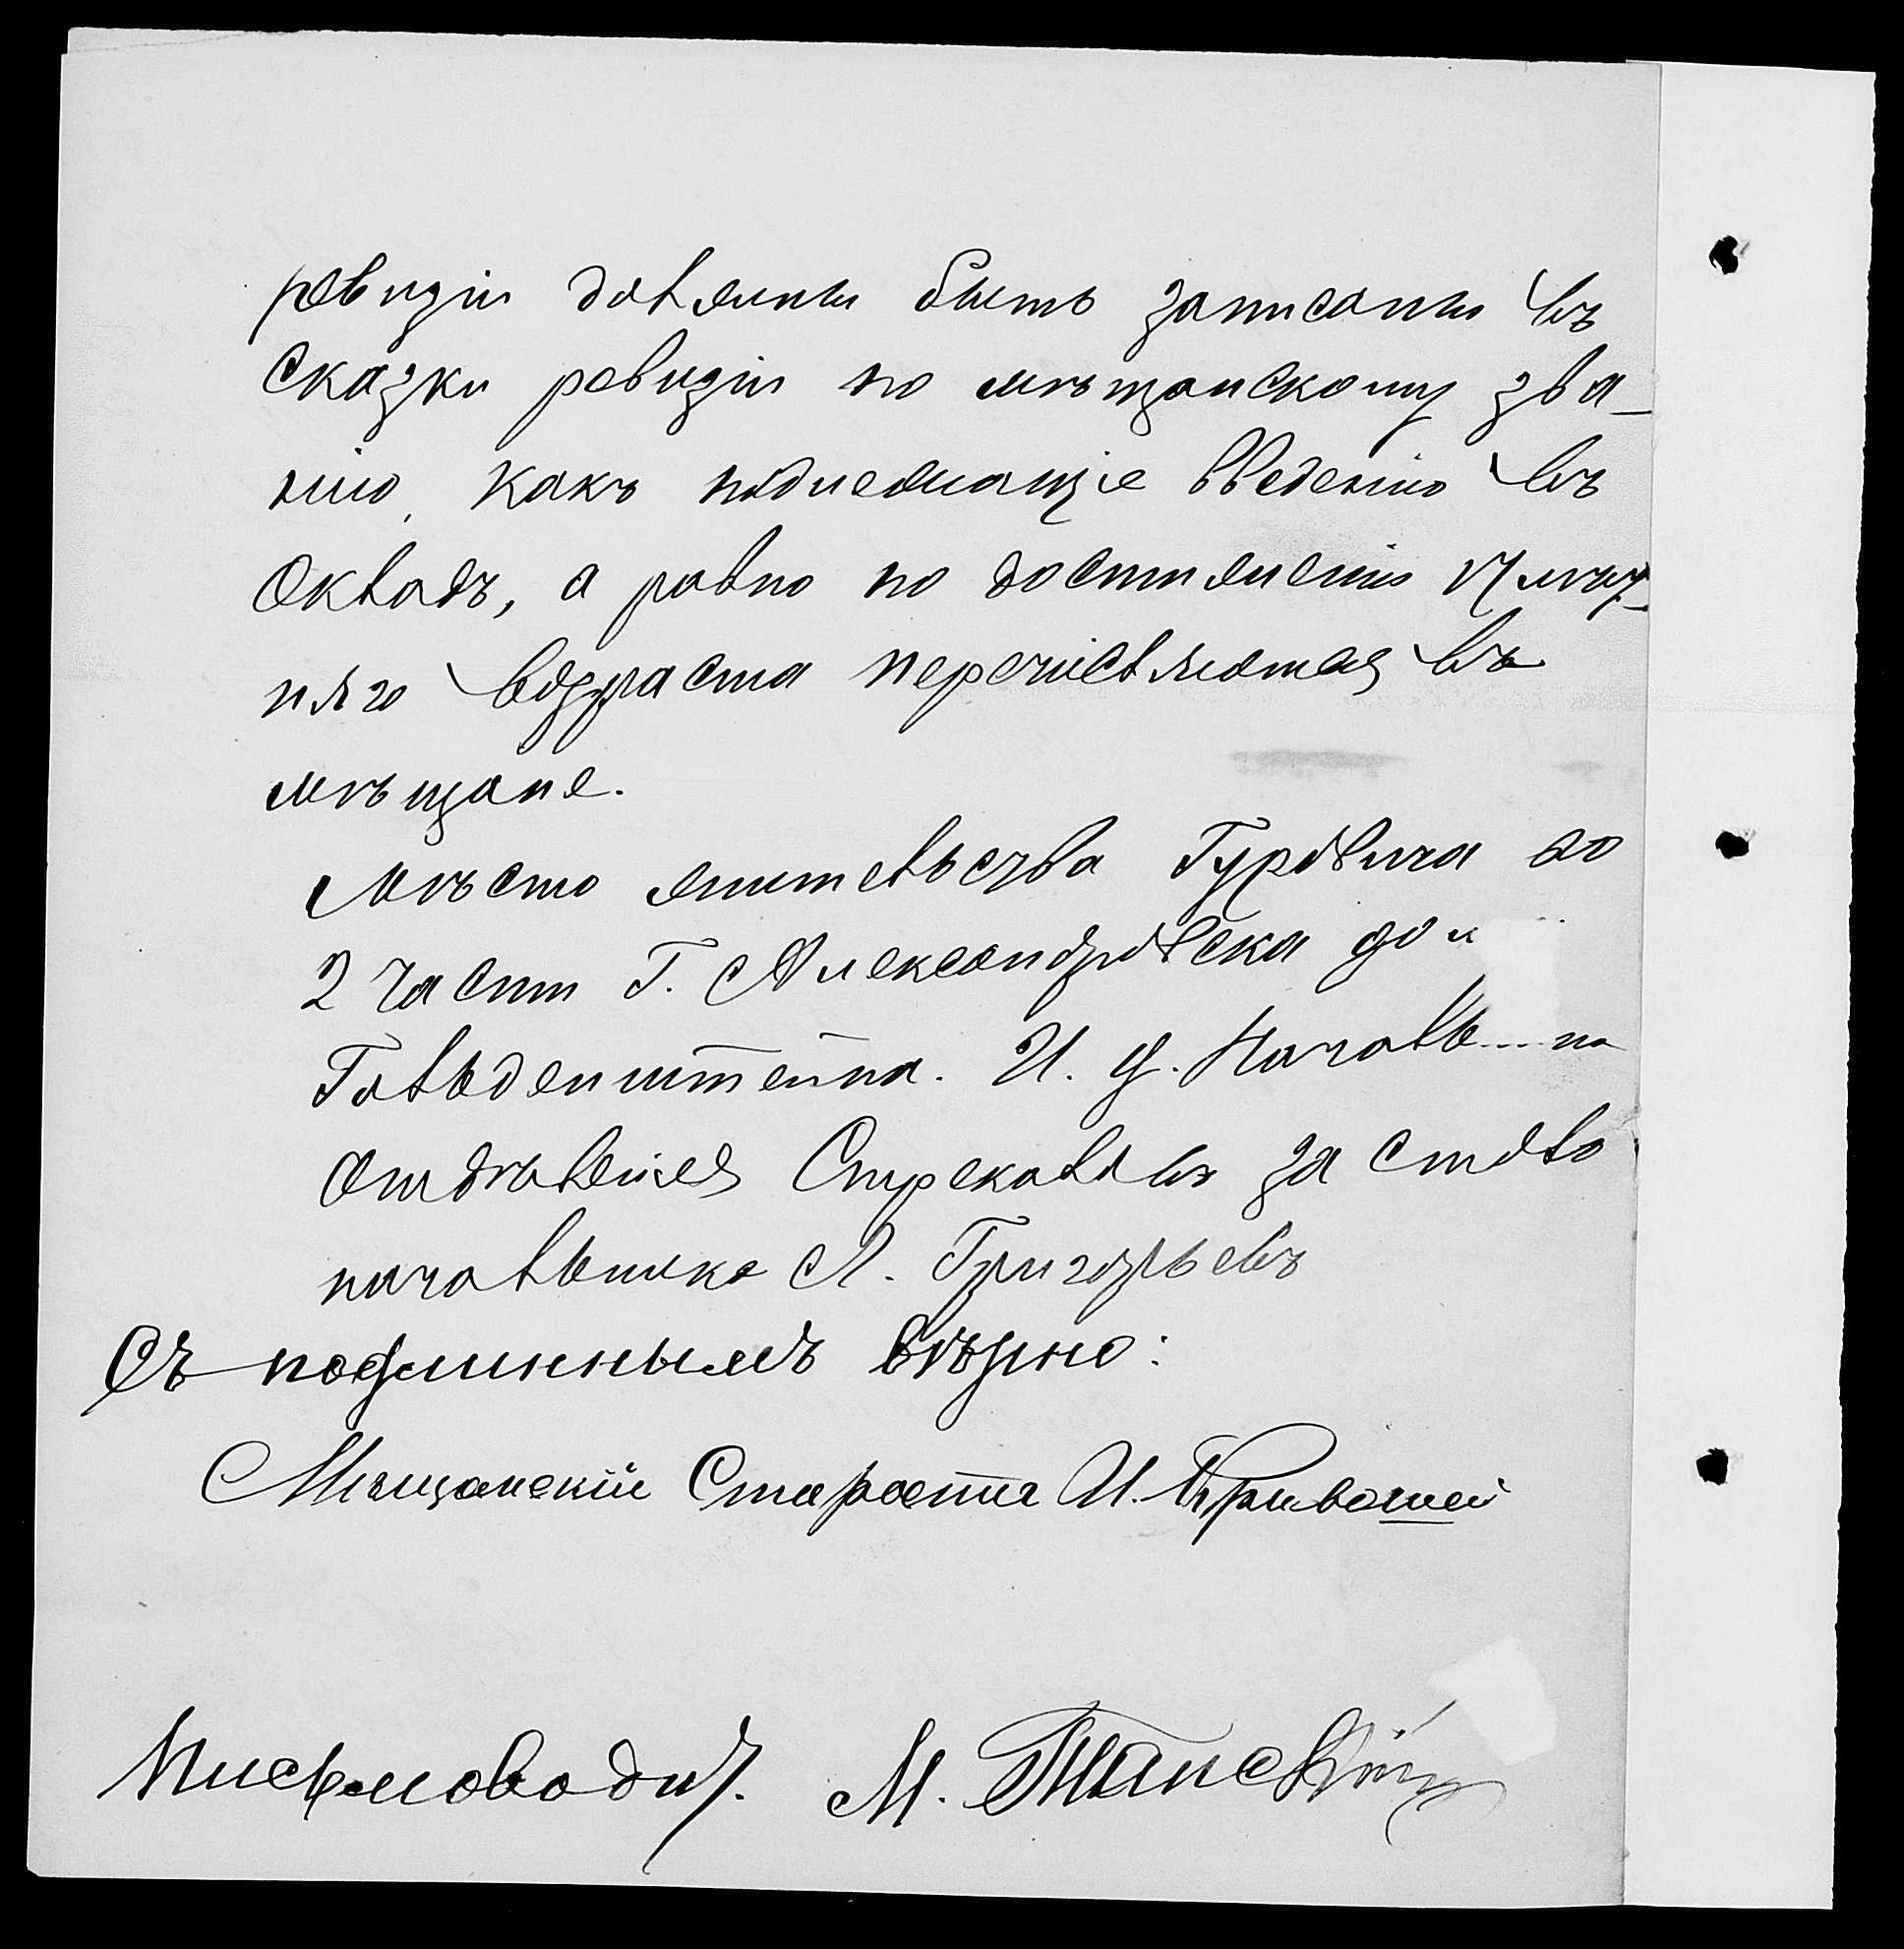 ревизіи должны быть записаны въ
сказки ревизіи по мѣщанскому зва-
нію, какъ подлежащіе введенію въ
окладъ, а равно по достиженію 17 лѣт-
няго возраста перечисляются въ
мѣщане.
Мѣсто жительства Гуровича во
2 части г. Александровска
Гольденштейна. И. д.
отдѣленія за столо
начальника А. Григорьевъ
Съ подлиннымъ вѣрно:
Мѣщанскій Староста И. Кривошей
Письмовод. М.